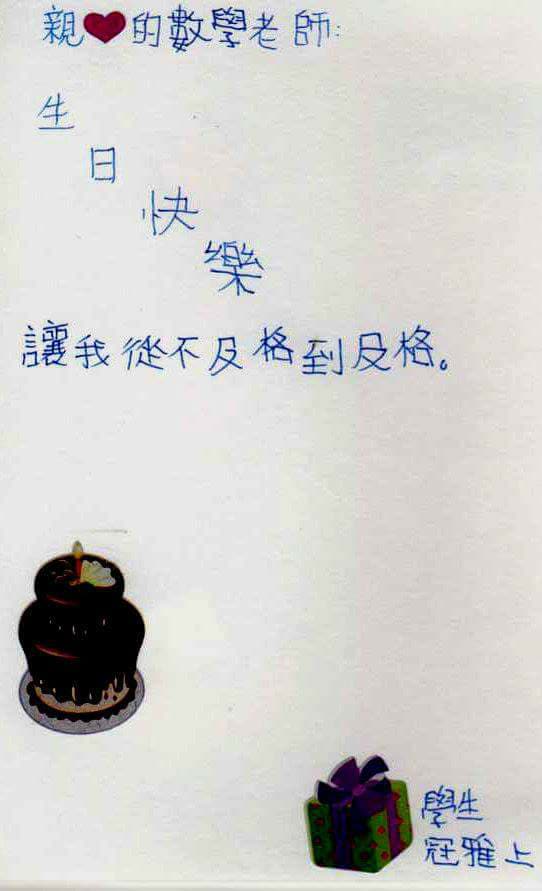 親❤的數學老師:
生
日
快
樂
讓我從不及格到及格。
學生
冠雅上